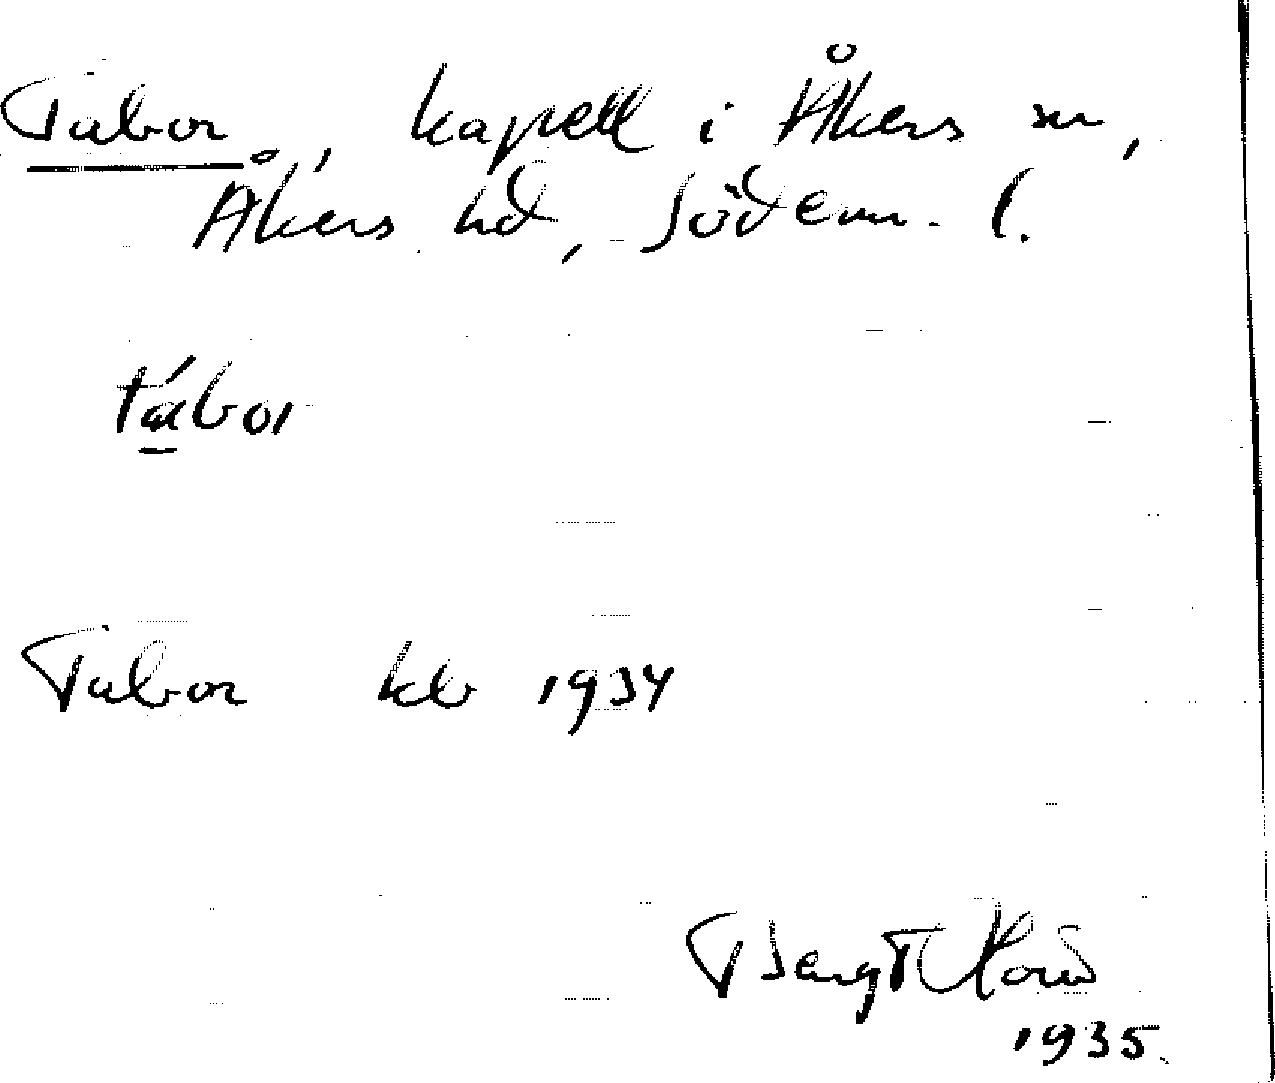 Tabor, kapell i Åkers sn,
Åkers hd, Söderm. l.
tábor
Tabor kb 1934
Bengt
1935.